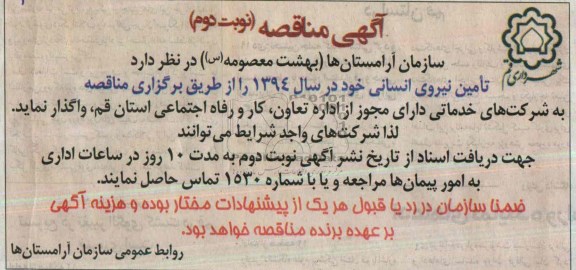 آگهی مناقصه (نوبت دوم)
شهرداری قم
سازمان آرامستان‌ها (بهشت معصومه(س)) در نظر دارد
تأمین نیروی انسانی خود در سال ۱۳۹۴ را از طریق برگزاری مناقصه
به شرکت‌های خدماتی دارای مجوز از اداره تعاون، کار و رفاه اجتماعی استان قم، واگذار نماید.
لذا شرکت‌های واجد شرایط می‌توانند
جهت دریافت اسناد از تاریخ نشر آگهی نوبت دوم به مدت ۱۰ روز در ساعات اداری
به امور پیمان‌ها مراجعه و یا با شماره ۱۵۳۰ تماس حاصل نمایند.
ضمنا سازمان در رد یا قبول هر یک از پیشنهادات مختار بوده و هزینه آگهی
بر عهده برنده مناقصه خواهد بود.
روابط عمومی سازمان آرامستان‌ها